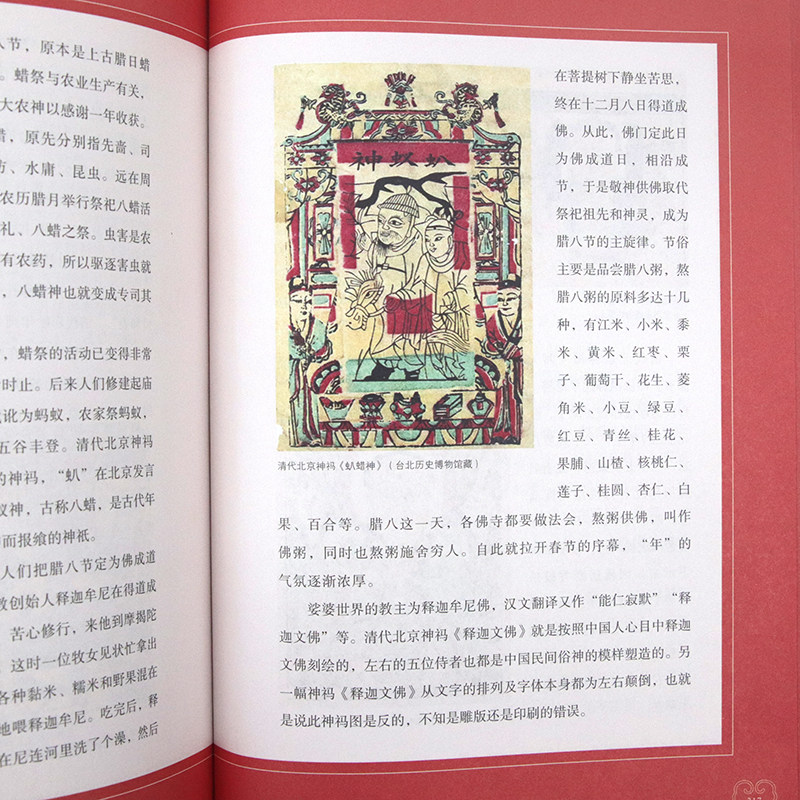 八节，原本是上古腊日蜡
。蜡祭与农业生产有关，
大农神以感谢一年收获。
腊，原先分别指先啬、司
防、水庸、昆虫。远在周
农历腊月举行祭祀八蜡活
礼、八蜡之祭。虫害是农
有农药，所以驱逐害虫就
，八蜡神也就变成专司其
，蜡祭的活动已变得非常
时止。后来人们修建起庙
讹为蚂蚁，农家祭蚂蚁，
五谷丰登。清代北京神祃
的神祃，“虲”在北京发言
蚁神，古称八蜡，是古代年
而报飨的神祇。
人们把腊八节定为佛成道
教创始人释迦牟尼在得道成
苦心修行，来他到摩揭陀
这时一位牧女见状忙拿出
各种黏米、糯米和野果混在
地喂释迦牟尼。吃完后，释
在尼连河里洗了个澡，然后
神蚁虲
清代北京神祃《虲蜡神》（台北历史博物馆藏）
在菩提树下静坐苦思，
终在十二月八日得道成
佛。从此，佛门定此日
为佛成道日，相沿成
节，于是敬神供佛取代
祭祀祖先和神灵，成为
腊八节的主旋律。节俗
主要是品尝腊八粥，熬
腊八粥的原料多达十几
种，有江米、小米、黍
米、黄米、红枣、栗
子、葡萄干、花生、菱
角米、小豆、绿豆、
红豆、青丝、桂花、
果脯、山楂、核桃仁、
莲子、桂圆、杏仁、白
果、百合等。腊八这一天，各佛寺都要做法会，熬粥供佛，叫作
佛粥，同时也熬粥施舍穷人。自此就拉开春节的序幕，“年”的
气氛逐渐浓厚。
娑婆世界的教主为释迦牟尼佛，汉文翻译又作“能仁寂默”“释
迦文佛”等。清代北京神祃《释迦文佛》就是按照中国人心目中释迦
文佛刻绘的，左右的五位侍者也都是中国民间俗神的模样塑造的。另
一幅神祃《释迦文佛》从文字的排列及字体本身都为左右颠倒，也就
是说此神祃图是反的，不知是雕版还是印刷的错误。